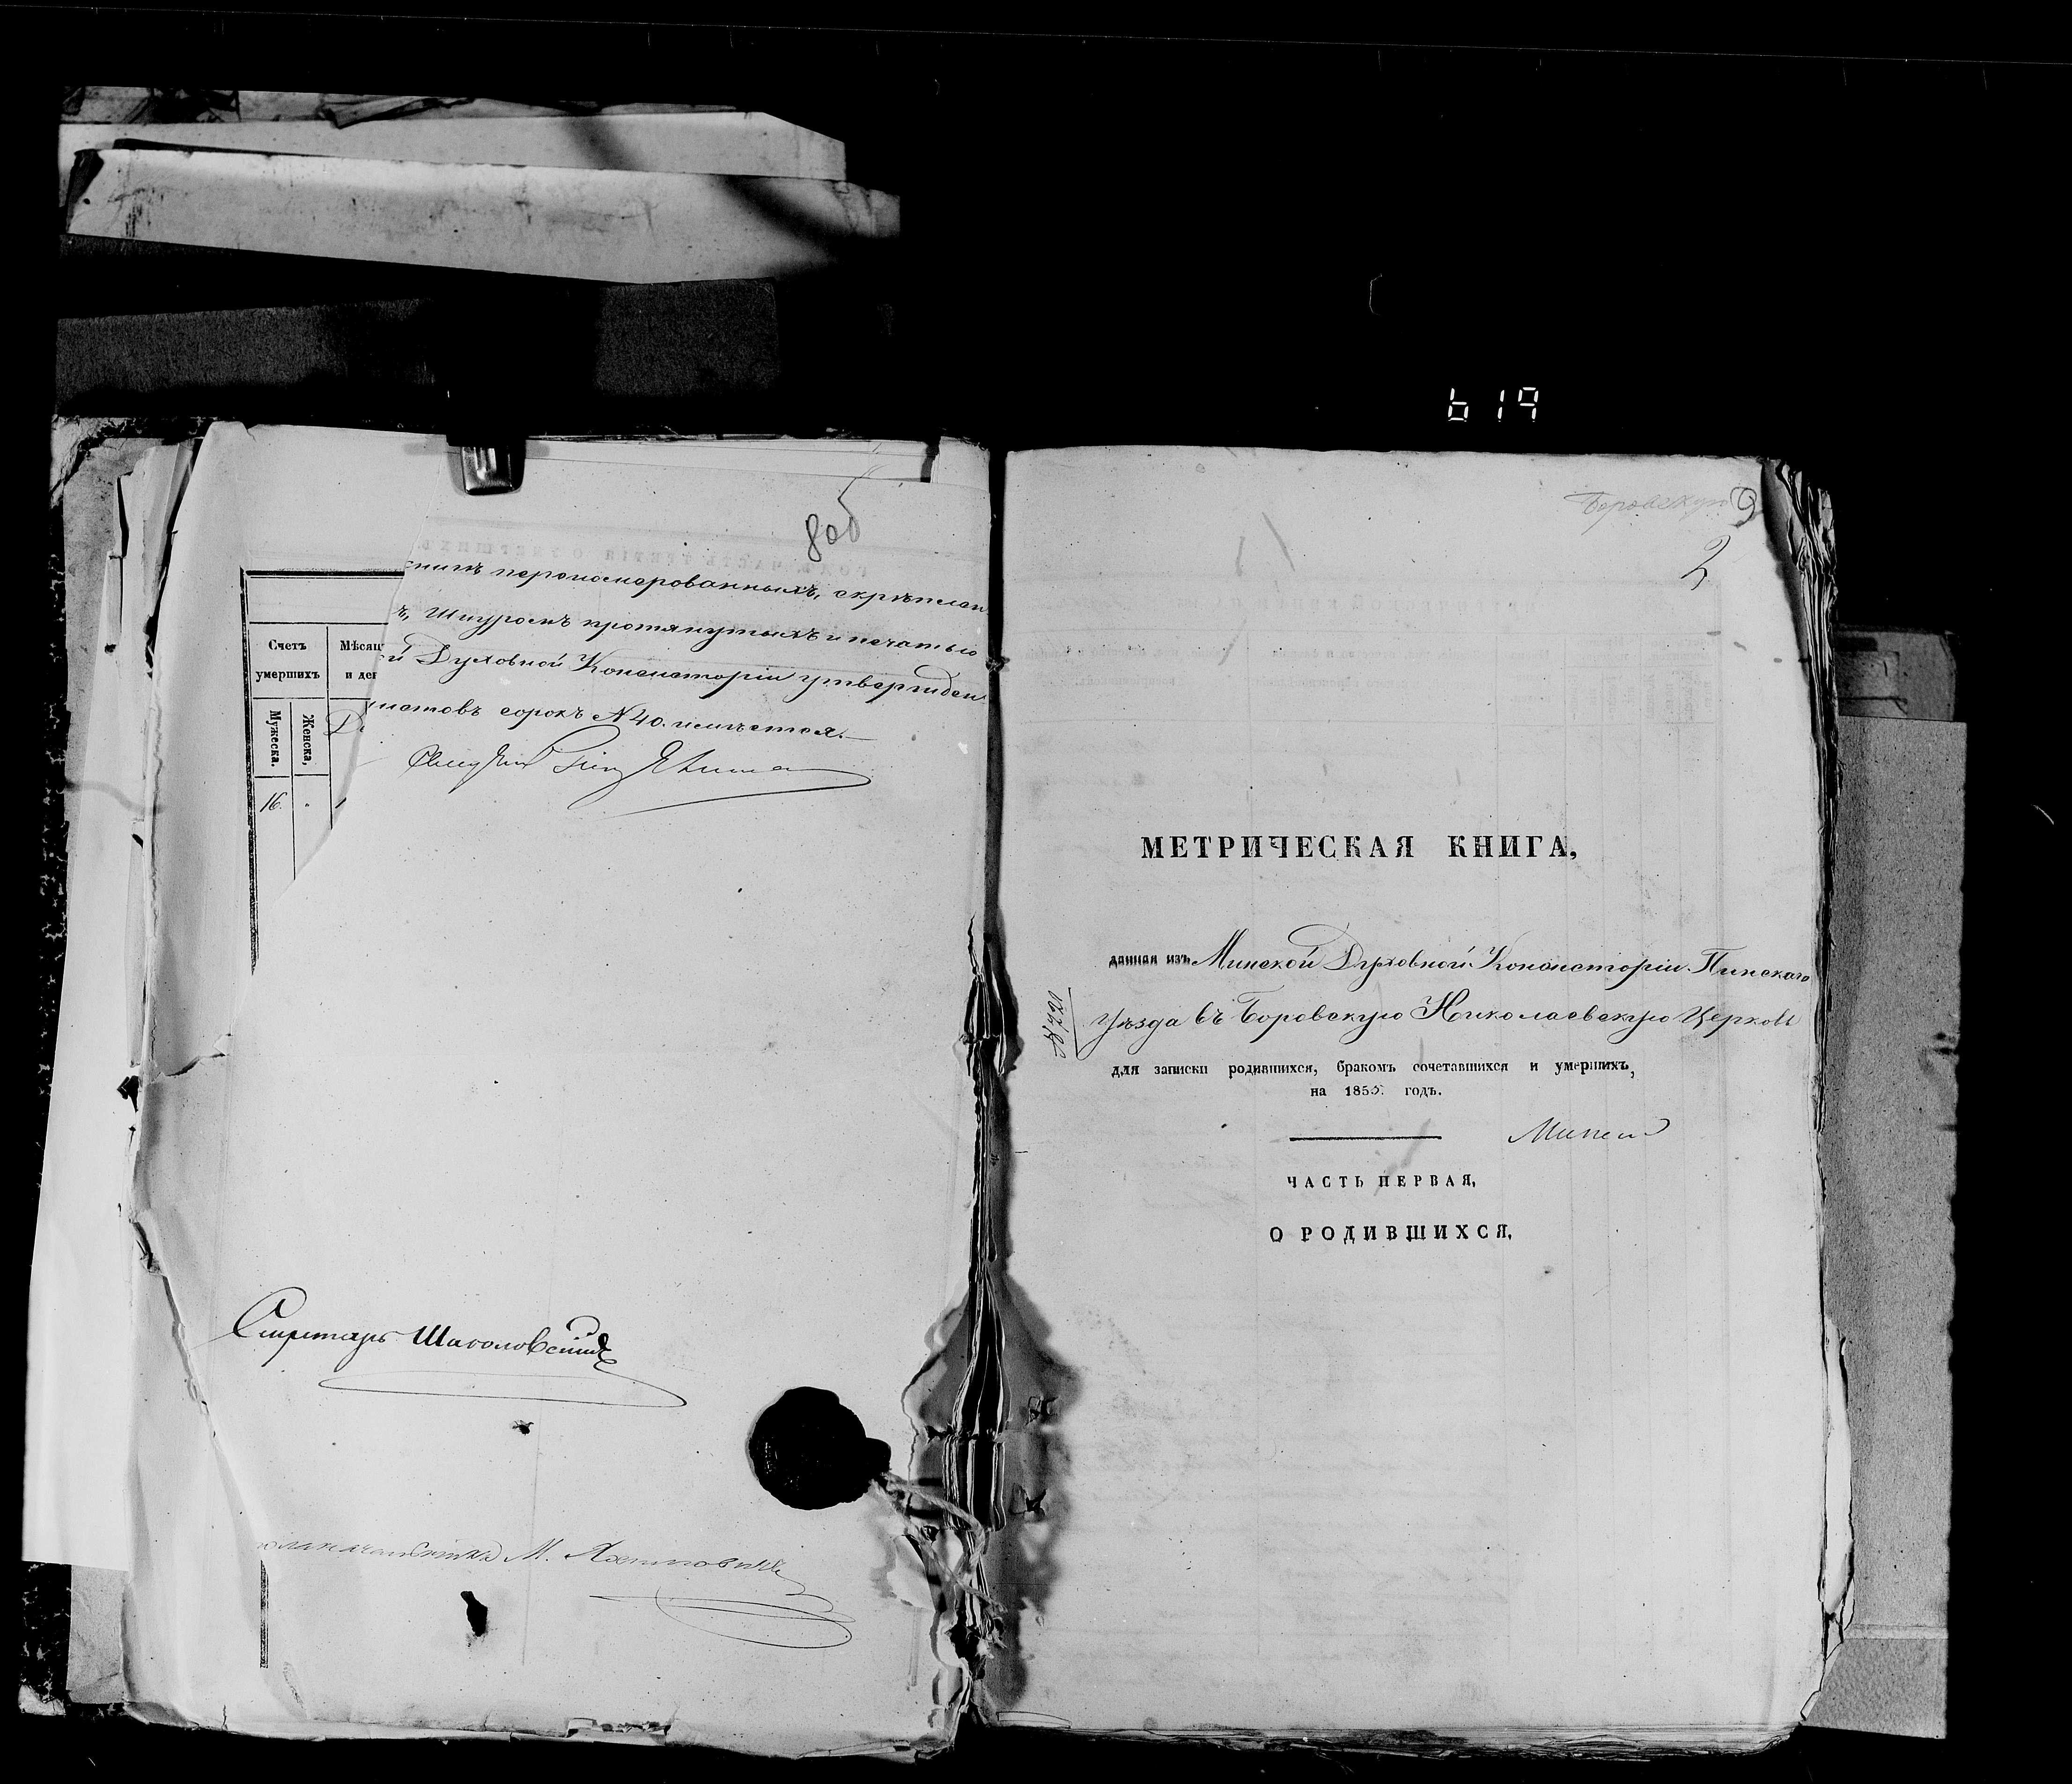 619
8об
перономерованныхъ, скрѣплен
ъ, Шнуромъ протянутыхъ и печатью
ой Духовной Консисторіи утвержден
листовъ сорокъ N 40. имѣется.
Счетъ умершихъ
Мѣсяц и ден
Мужеска.
Женска.
16
Секретарь
М.
Боровскую 9
2
МЕТРИЧЕСКАЯ КНИГА,
данная изъ Минской Духовной Консисторіи Пинскаго
Уѣзда въ Боровскую Николаевскую Церковь
для записки родившихся, бракомъ сочетавшихся и умершихъ,
на 1855. годъ.
ЧАСТЬ ПЕРВАЯ,
О РОДИВШИХСЯ,